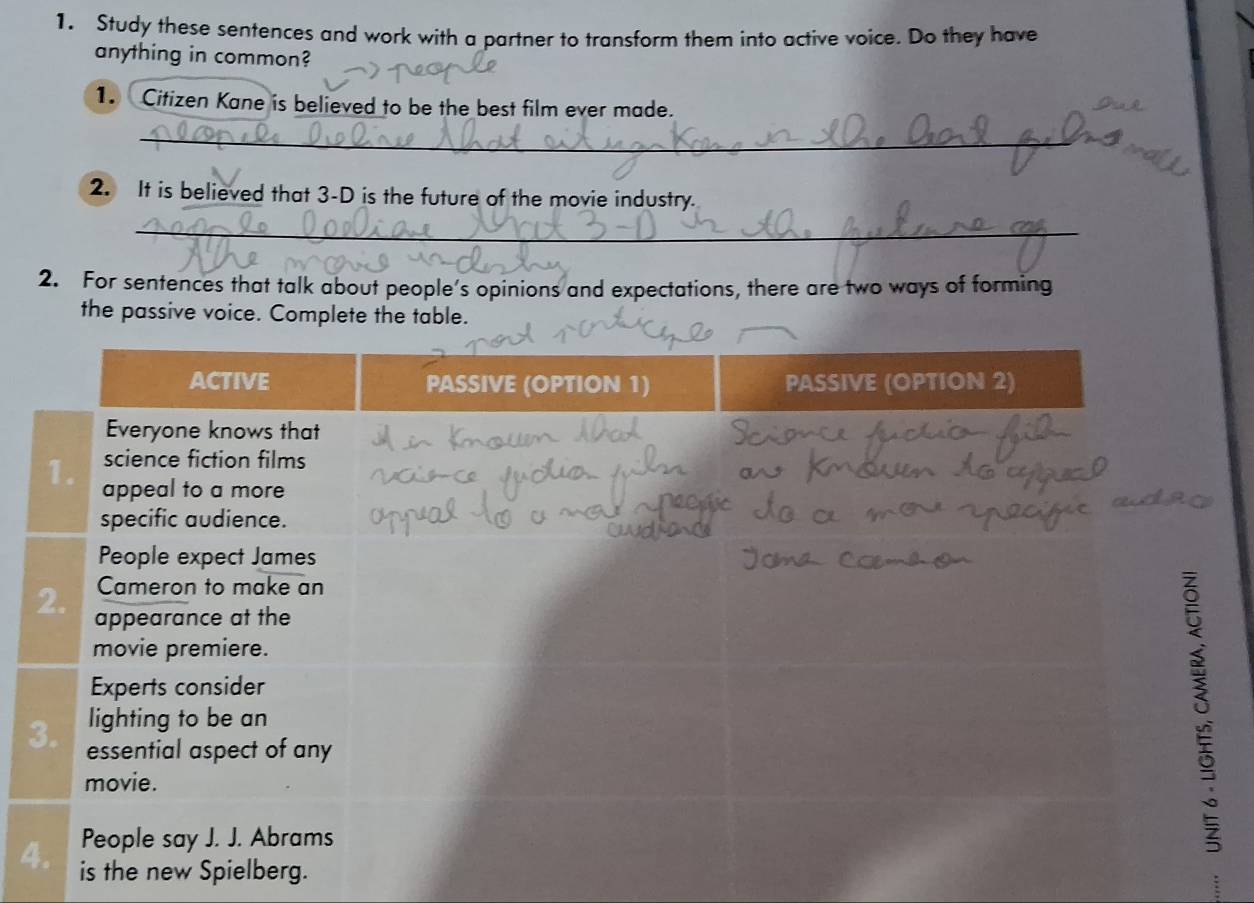 1. Study these sentences and work with a partner to transform them into active voice. Do they have
anything in common?
→ people
1. Citizen Kane is believed to be the best film ever made.
that the
2. It is believed that 3-D is the future of the movie industry.
people that 3-D is the future of
the movie industry
2. For sentences that talk about people's opinions and expectations, there are two ways of forming
the passive voice. Complete the table.
ACTIVE PASSIVE (OPTION 1) PASSIVE (OPTION 2)
1. Everyone knows that
science fiction films
appeal to a more
specific audience.
it is known that
science fiction film
appeal to a more specific
Science fiction film
are known to appeal
to a more specific
2. People expect James
Cameron to make an
appearance at the
movie premiere.
3. Experts consider
lighting to be an
essential aspect of any
movie.
4. People say J. J. Abrams
is the new Spielberg.
UNIT 6 - LIGHTS, CAMERA, ACTION!